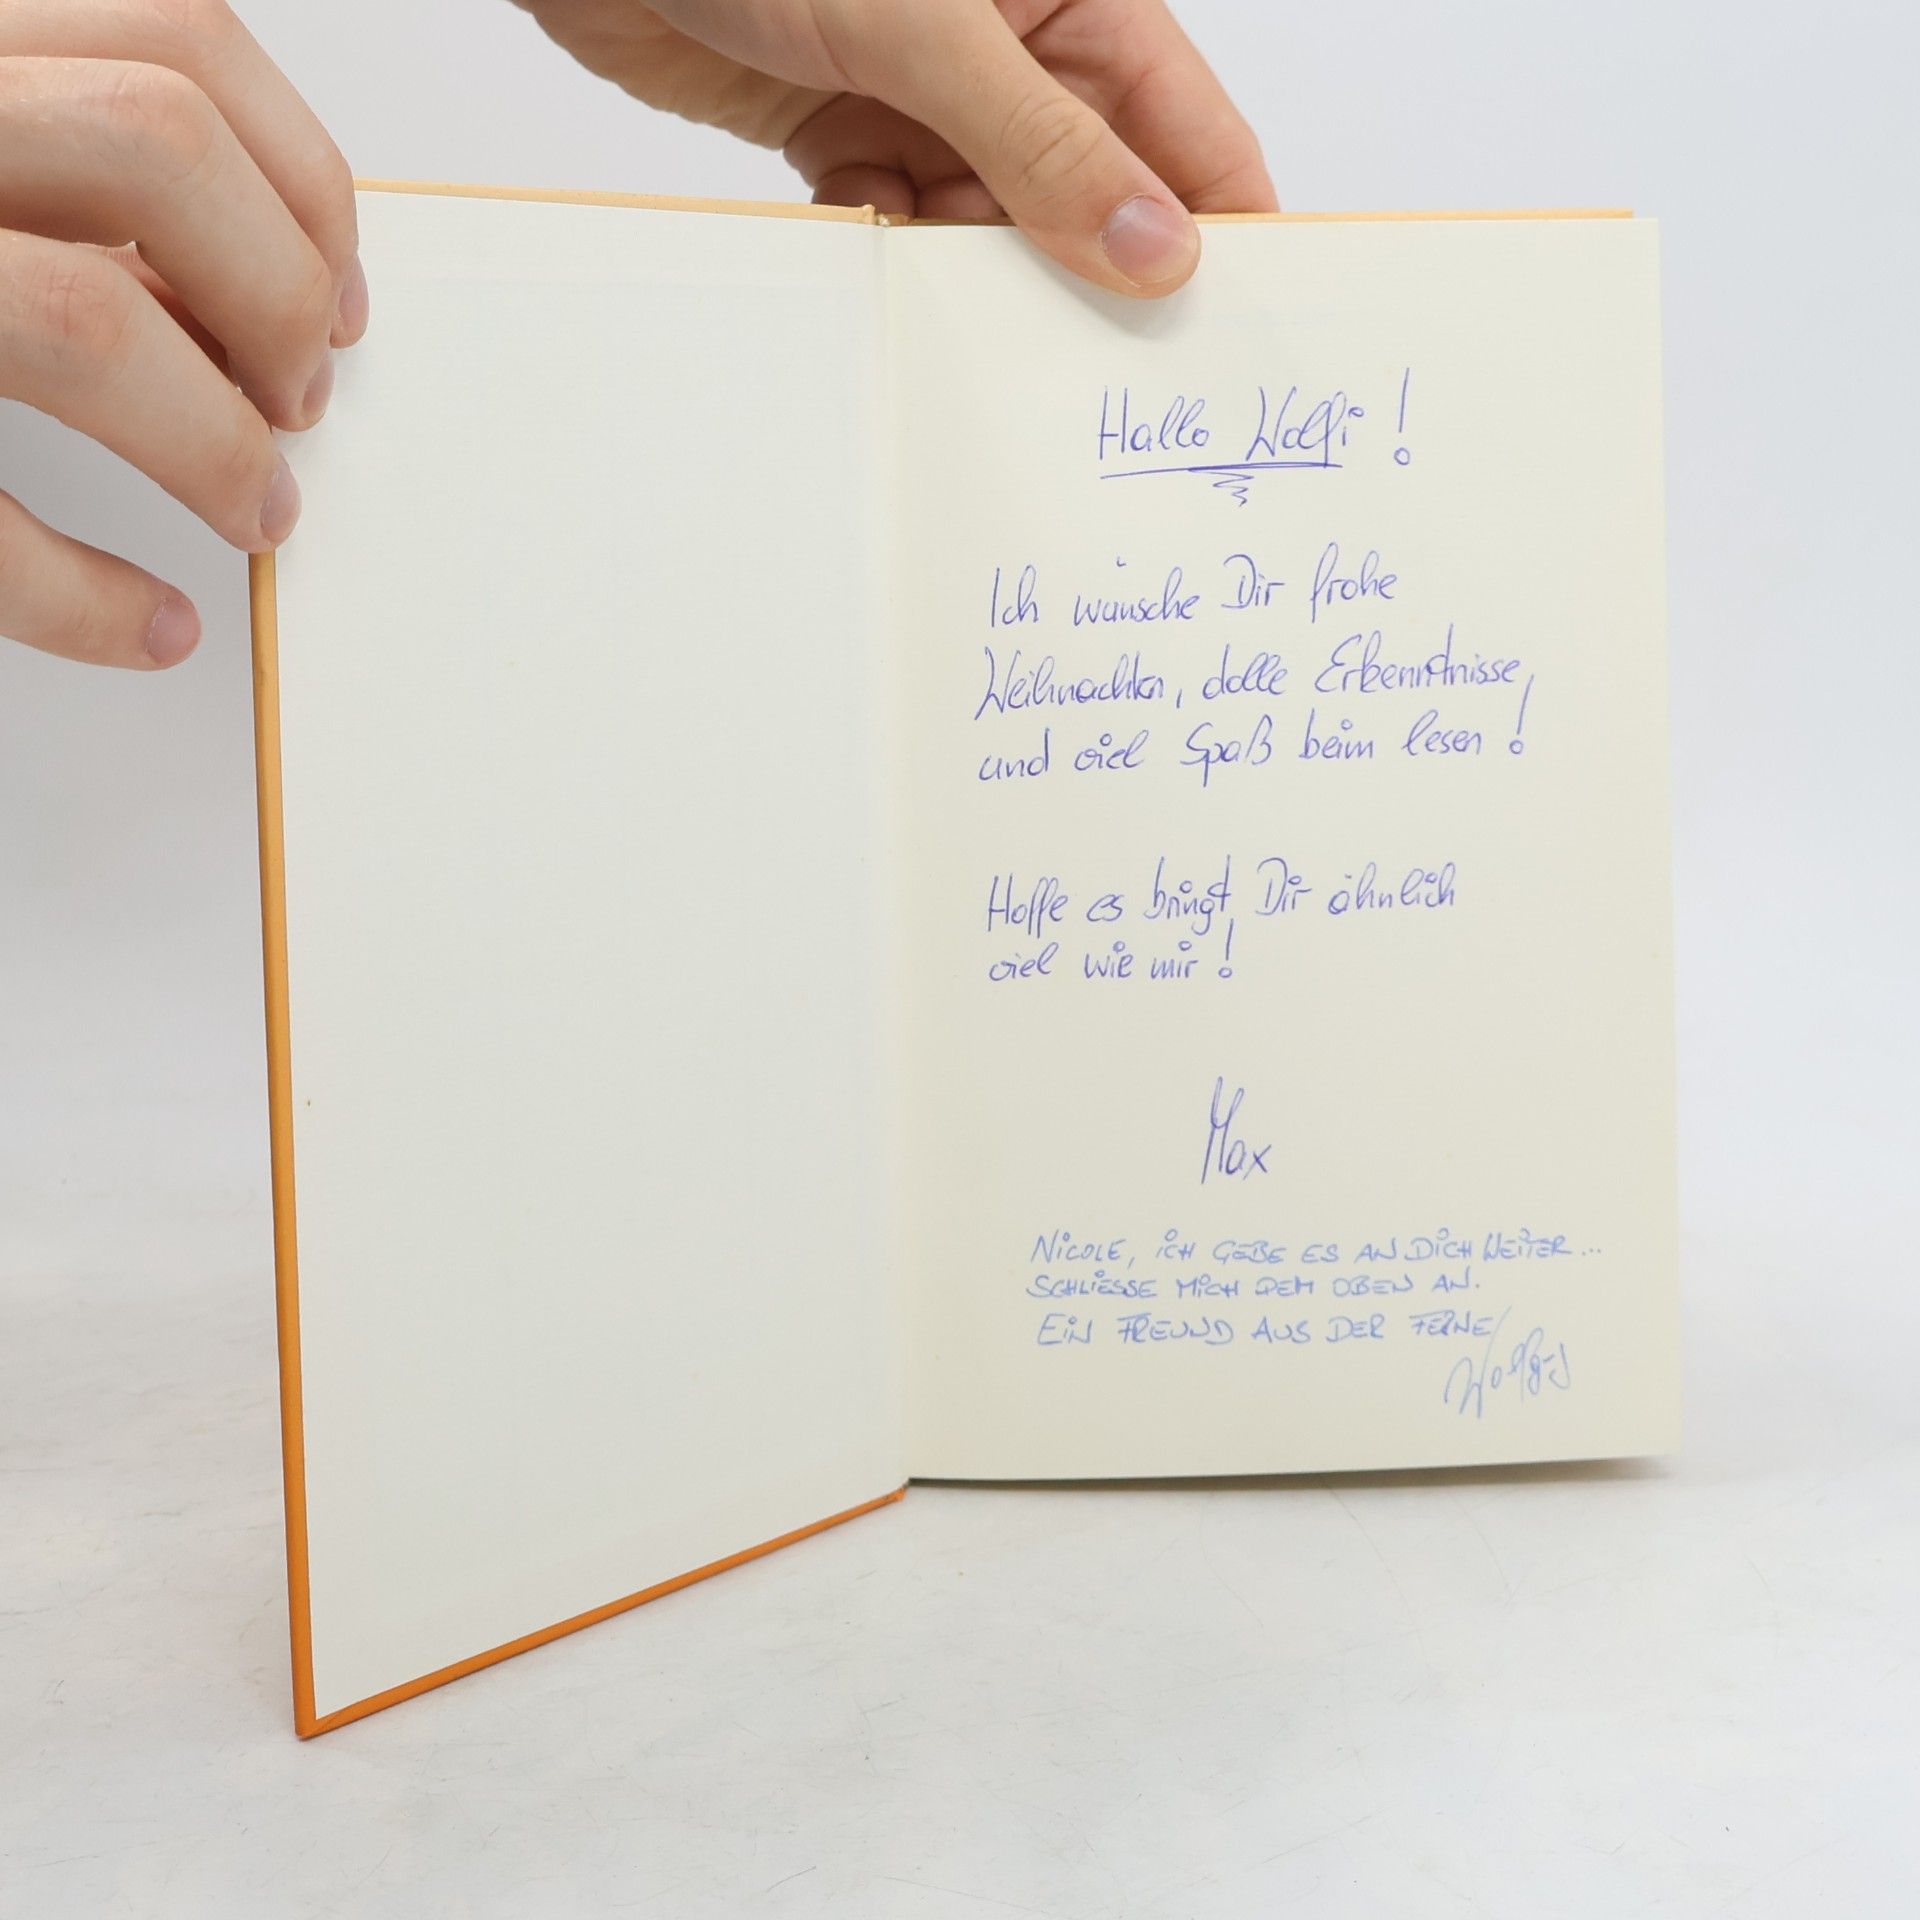 Hallo Wolfi!
Ich wünsche Dir frohe
Weihnachten, dolle Erkenntnisse,
und viel Spaß beim lesen!
Hoffe es bringt Dir ähnlich
viel wie mir!
Max
NICOLE, ICH GEBE ES AN DICH WEITER...
SCHLIESSE MICH DEM OBEN AN.
EIN FREUND AUS DER FERNE